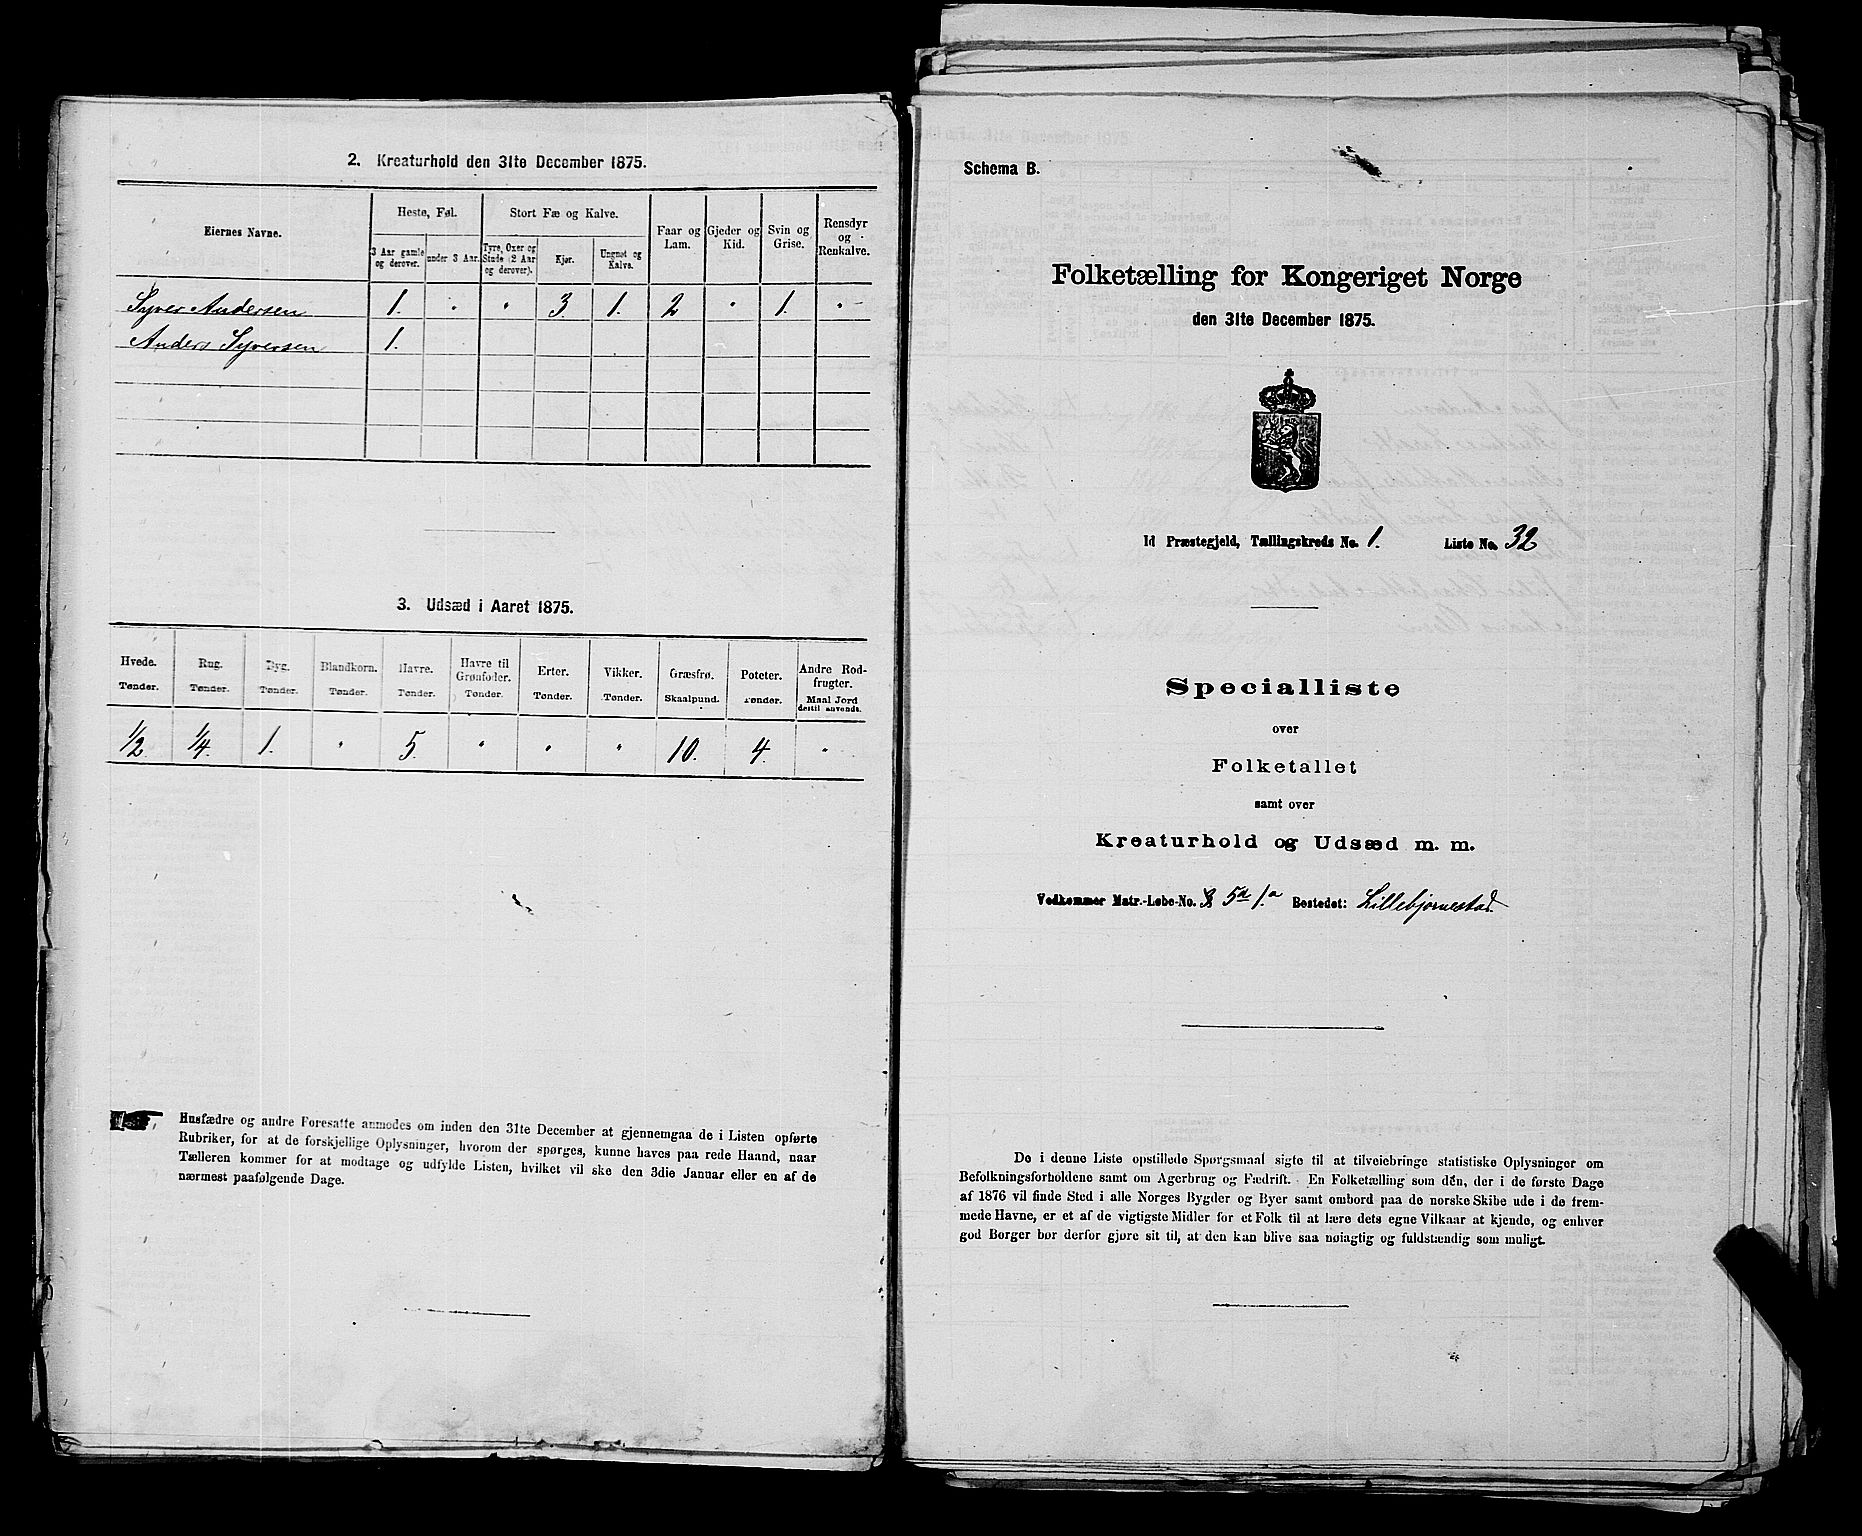 2. Kreaturhold den 31te December 1875.
Eiernes Navne.
Heste, Føl.
Stort Fæ og Kalve.
Faar og Lam.
Gjeder og Kid.
Svin og Grise.
Rensdyr og Renkalve.
3 Aar gamle og derover.
under 3 Aar.
Tyre, Oxer og Stude (2 Aar og derover).
Kjør.
Ungnøt og Kalve.
Syver Andersen 1. " " 3. 1. 2 " 1. "
Anders Syversen 1.
3. Udsæd i Aaret 1875.
Hvede. Rug. Byg. Blandkorn. Havre. Havre til Grønfoder. Erter. Vikker. Græsfrø. Poteter. Andre Rodfrugter.
Tønder. Tønder. Tønder. Tønder. Tønder. Tønder. Tønder. Tønder. Skaalpund. Tønder. Maal Jord dertil anvendt.
1/2 1/4. 1. " 5. " " " 10. 4. "
Husfædre og andre Foresatte anmodes om inden den 31te December at gjennemgaa de i Listen opførte
Rubriker, for at de forskjellige Oplysninger, hvorom der spørges, kunne haves paa rede Haand, naar
Tælleren kommer for at modtage og udfylde Listen, hvilket vil ske den 3die Januar eller en af de
nærmest paafølgende Dage.
Schema B.
Folketælling for Kongeriget Norge
den 31te December 1875.
Id Præstegjeld, Tællingskreds No. 1. Liste No. 32
Specialliste
over
Folketallet
samt over
Kreaturhold og Udsæd m. m.
Vedkommer Matr.-Løbe-No. 5a 1.a Bostedet: Lillebjørnestad.
De i denne Liste opstillede Spørgsmaal sigte til at tilveiebringe statistiske Oplysninger om
Befolkningsforholdene samt om Agerbrug og Fædrift. En Folketælling som den, der i de første Dage
af 1876 vil finde Sted i alle Norges Bygder og Byer samt ombord paa de norske Skibe ude i de frem-
mede Havne, er et af de vigtigste Midler for et Folk til at lære dets egne Vilkaar at kjende, og enhver
god Borger bør derfor gjøre sit til, at den kan blive saa nøiagtig og fuldstændig som muligt.